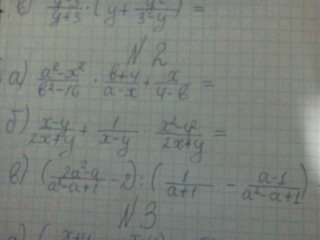 в) y+3 · (y +  3-y) =
N 2
а) a²-x² / b²-16 · b+4 / a-x + x / 4-b =
б) x-y / 2x+y + 1 / x-y · x²-y² / 2x+y =
в) (2a²-a / a²-a+1 - 2) : (1 / a+1 - a-1 / a²-a+1)
N 3